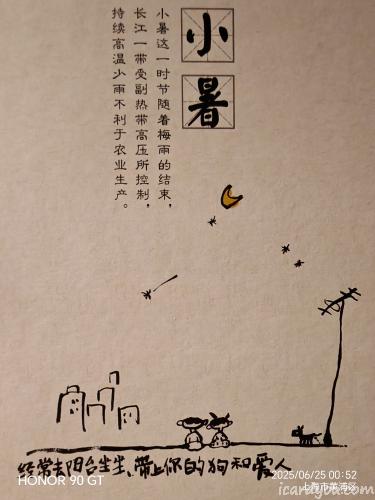 小暑
小暑这一时节随着梅雨的结束，
长江一带受副热带高压所控制，
持续高温少雨不利于农业生产。
经常去阳台坐坐、带上你的狗和爱人
HONOR 90 GT
2025/06/25 00:52
上海市黄浦区